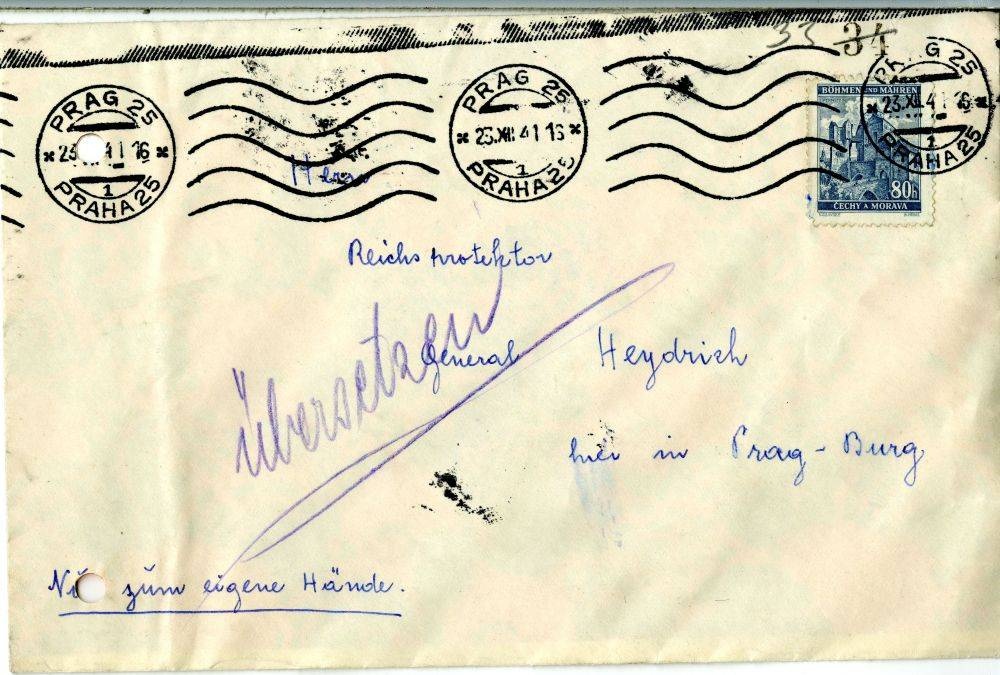 33 34
PRAG 25
23. 41 16
1
PRAHA 25
PRAG 25
23.XII.41 16
1
PRAHA 25
G 25
23.XII.41 16
1
PRAHA 25
BÖHMEN UND MÄHREN
80h
ČECHY A MORAVA
Herrn
Reichsprotektor
General Heydrich
hier in Prag-Burg
Übersetzen
zum eigene Hände.